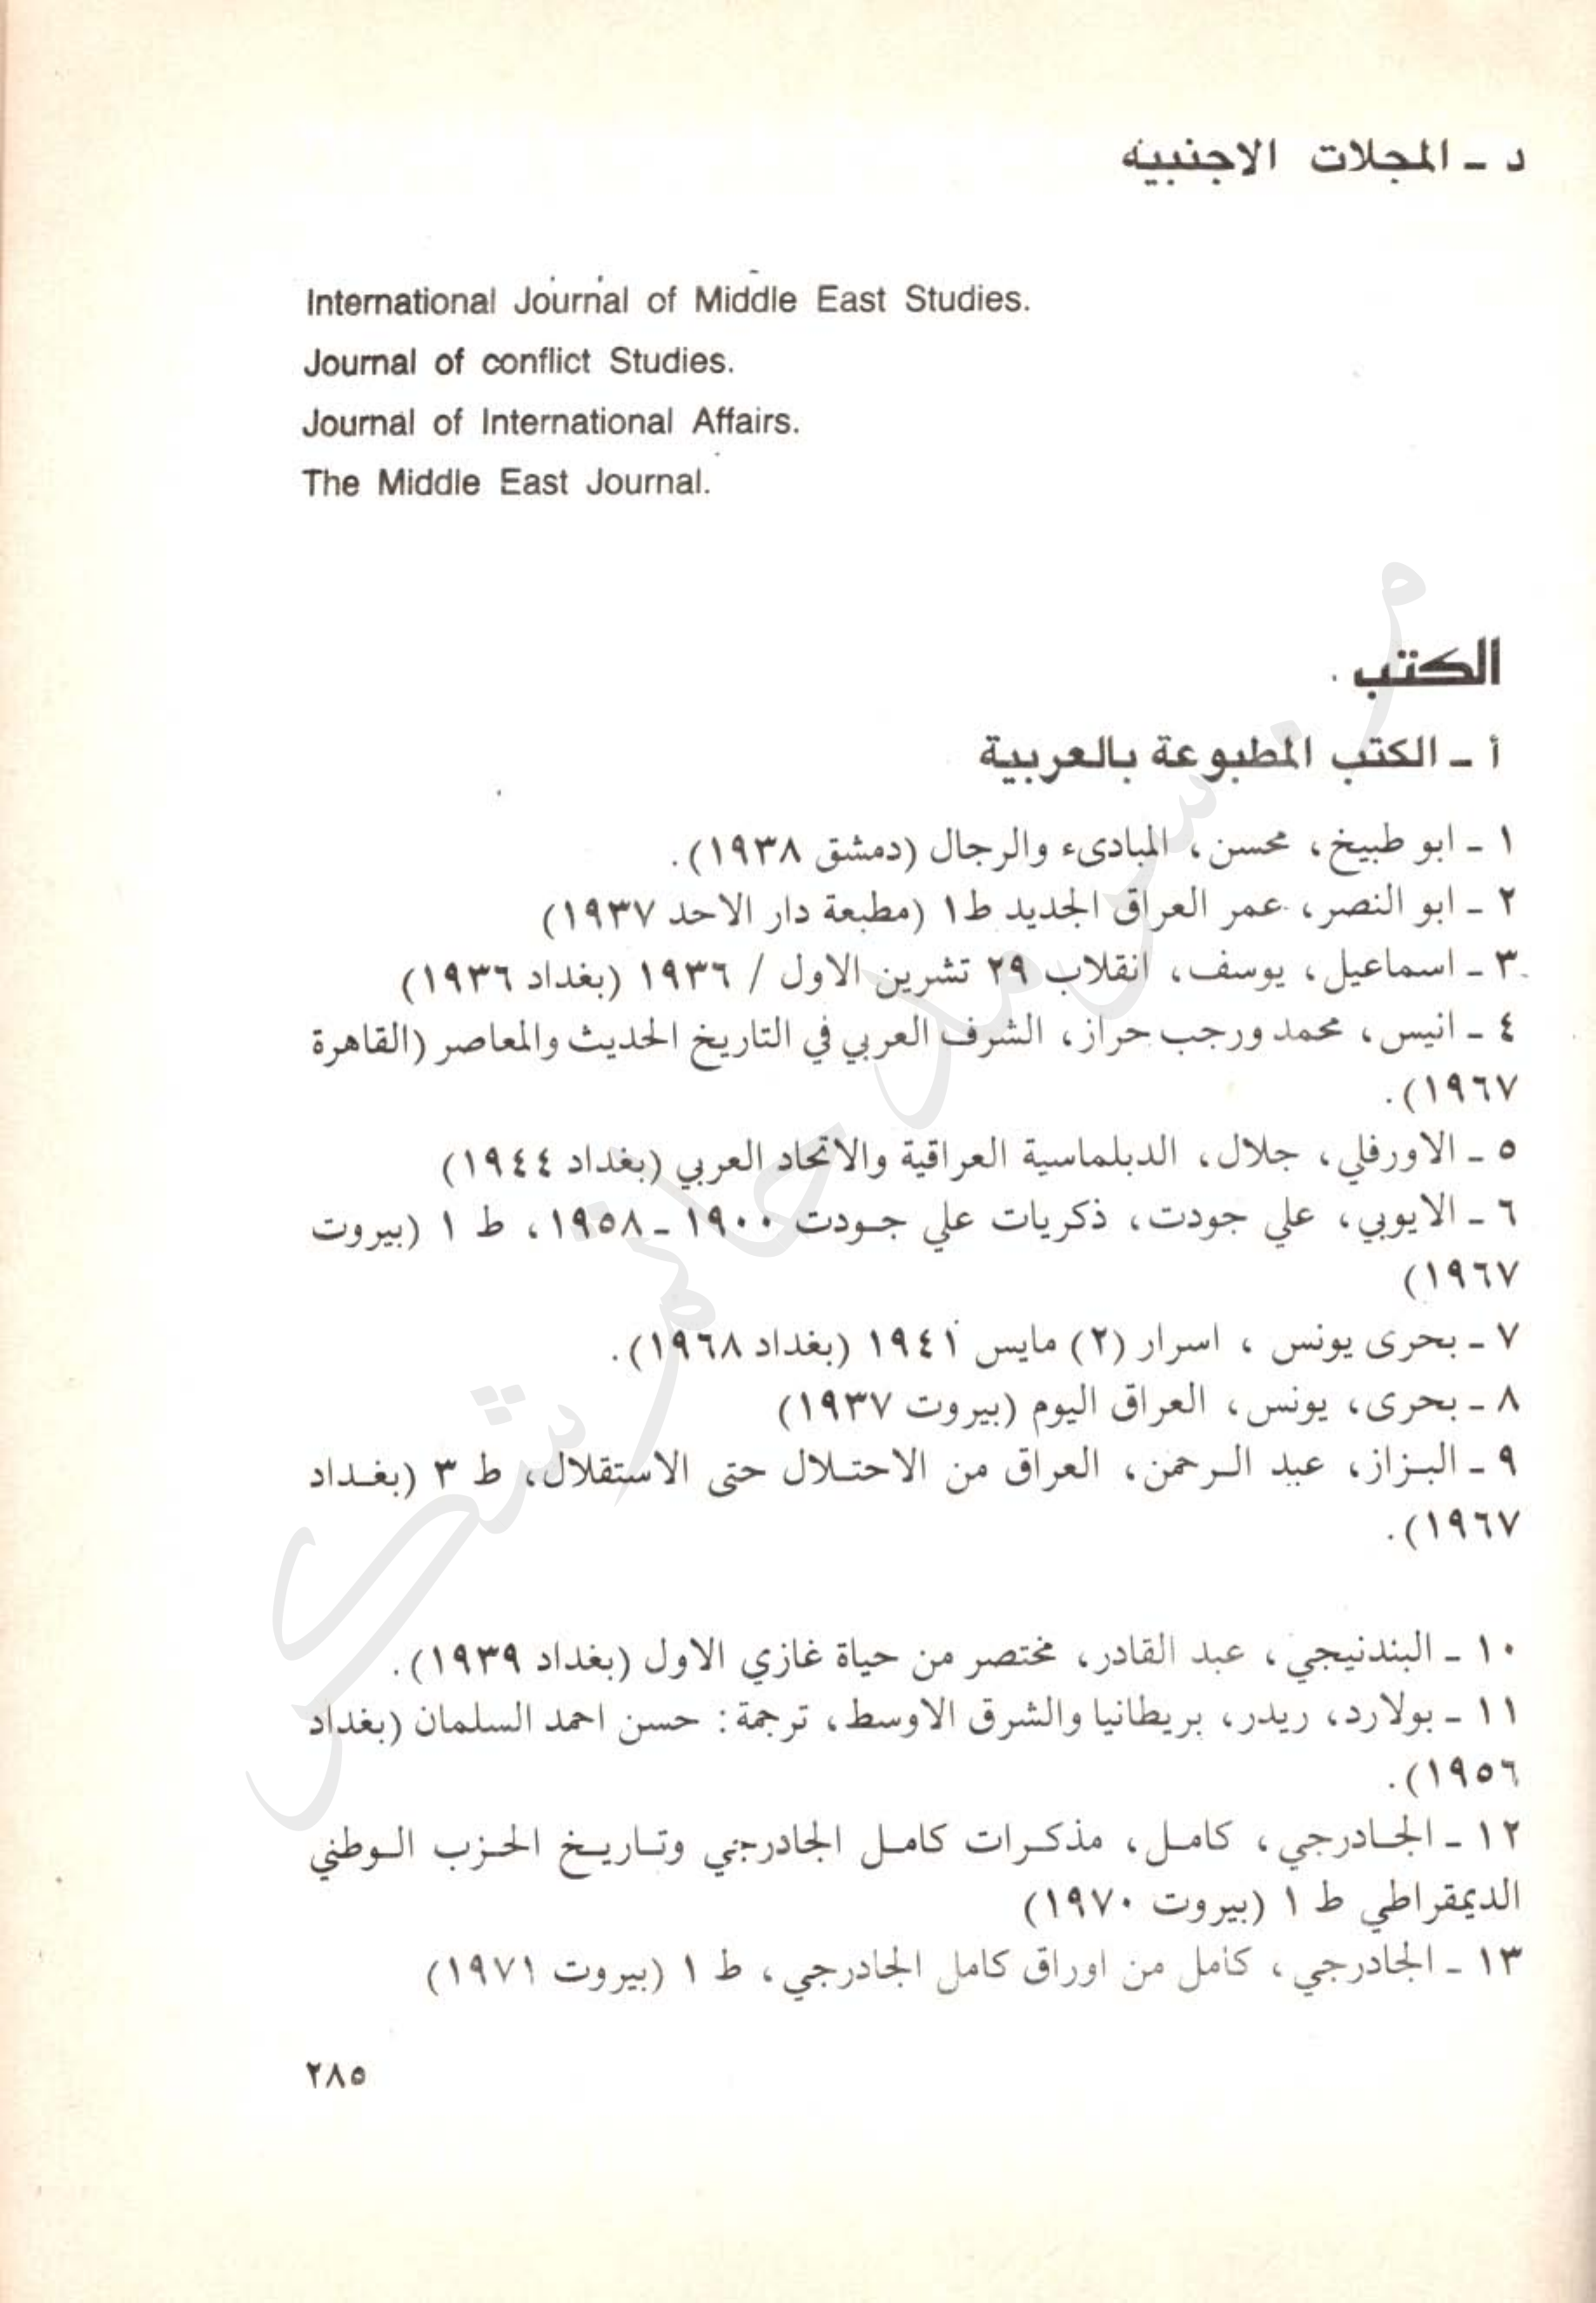 د ـ المجلات الاجنبيه
International Journal of Middle East Studies.
Journal of conflict Studies.
Journal of International Affairs.
The Middle East Journal.
الكتب
أ ـ الكتب المطبوعة بالعربية
١ ـ ابو طبيخ، محسن، المبادىء والرجال (دمشق ١٩٣٨).
٢ ـ ابو النصر، عمر العراق الجديد ط١ (مطبعة دار الاحد ١٩٣٧)
٣ ـ اسماعيل، يوسف، انقلاب ٢٩ تشرين الاول / ١٩٣٦ (بغداد ١٩٣٦)
٤ ـ انيس، محمد ورجب حراز، الشرف العربي في التاريخ الحديث والمعاصر (القاهرة
١٩٦٧).
٥ ـ الاورفلي، جلال، الدبلماسية العراقية والاتحاد العربي (بغداد ١٩٤٤)
٦ ـ الايوبي، علي جودت، ذكريات علي جـودت ١٩٠٠ ـ ١٩٥٨، ط ١ (بيروت
١٩٦٧)
٧ ـ بحرى يونس ، اسرار (٢) مايس ١٩٤١ (بغداد ١٩٦٨).
٨ ـ بحرى، يونس، العراق اليوم (بيروت ١٩٣٧)
٩ ـ البـزاز، عبد الـرحمن، العراق من الاحتـلال حتى الاستقلال، ط ٣ (بغـداد
١٩٦٧).
١٠ ـ البندنيجي، عبد القادر، مختصر من حياة غازي الاول (بغداد ١٩٣٩).
١١ ـ بولارد، ريدر، بريطانيا والشرق الاوسط، ترجمة: حسن احمد السلمان (بغداد
١٩٥٦).
١٢ ـ الجـادرجي، كامـل، مذكـرات كامـل الجادرجي وتـاريـخ الحـزب الـوطني
الديمقراطي ط ١ (بيروت ١٩٧٠)
١٣ ـ الجادرجي، كامل من اوراق كامل الجادرجي، ط ١ (بيروت ١٩٧١)
٢٨٥